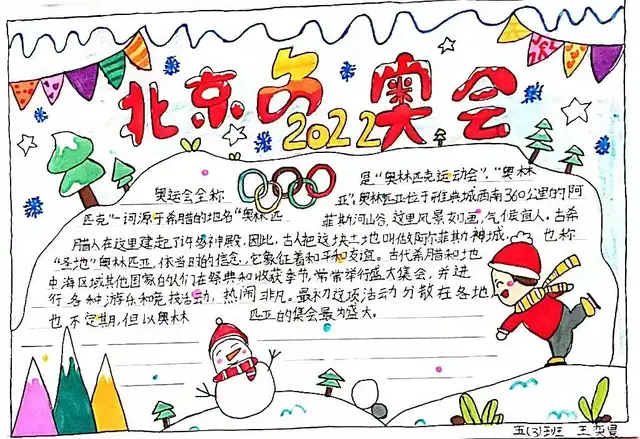 北京冬奥会
2022
奥运会全称 是“奥林匹克运动会”,“奥林
匹克”一词源于希腊的地名“奥林匹
亚”,奥林匹亚位于雅典城西南360公里的阿
菲斯河山谷,这里风景如画,气候宜人。古希
腊人在这里建起了许多神殿,因此,古人把这块土地叫做阿尔菲斯神城,也称
“圣地”奥林匹亚,依当时的信念,它象征着和平和友谊。古代希腊和地
中海区域其他国家的人们在祭典和收获季节,常常举行盛大集会,并进
行各种游乐和竞技活动,热闹非凡。最初这项活动分散在各地
也不定期,但以奥林匹亚的集会最为盛大。
五(3)班 王奕